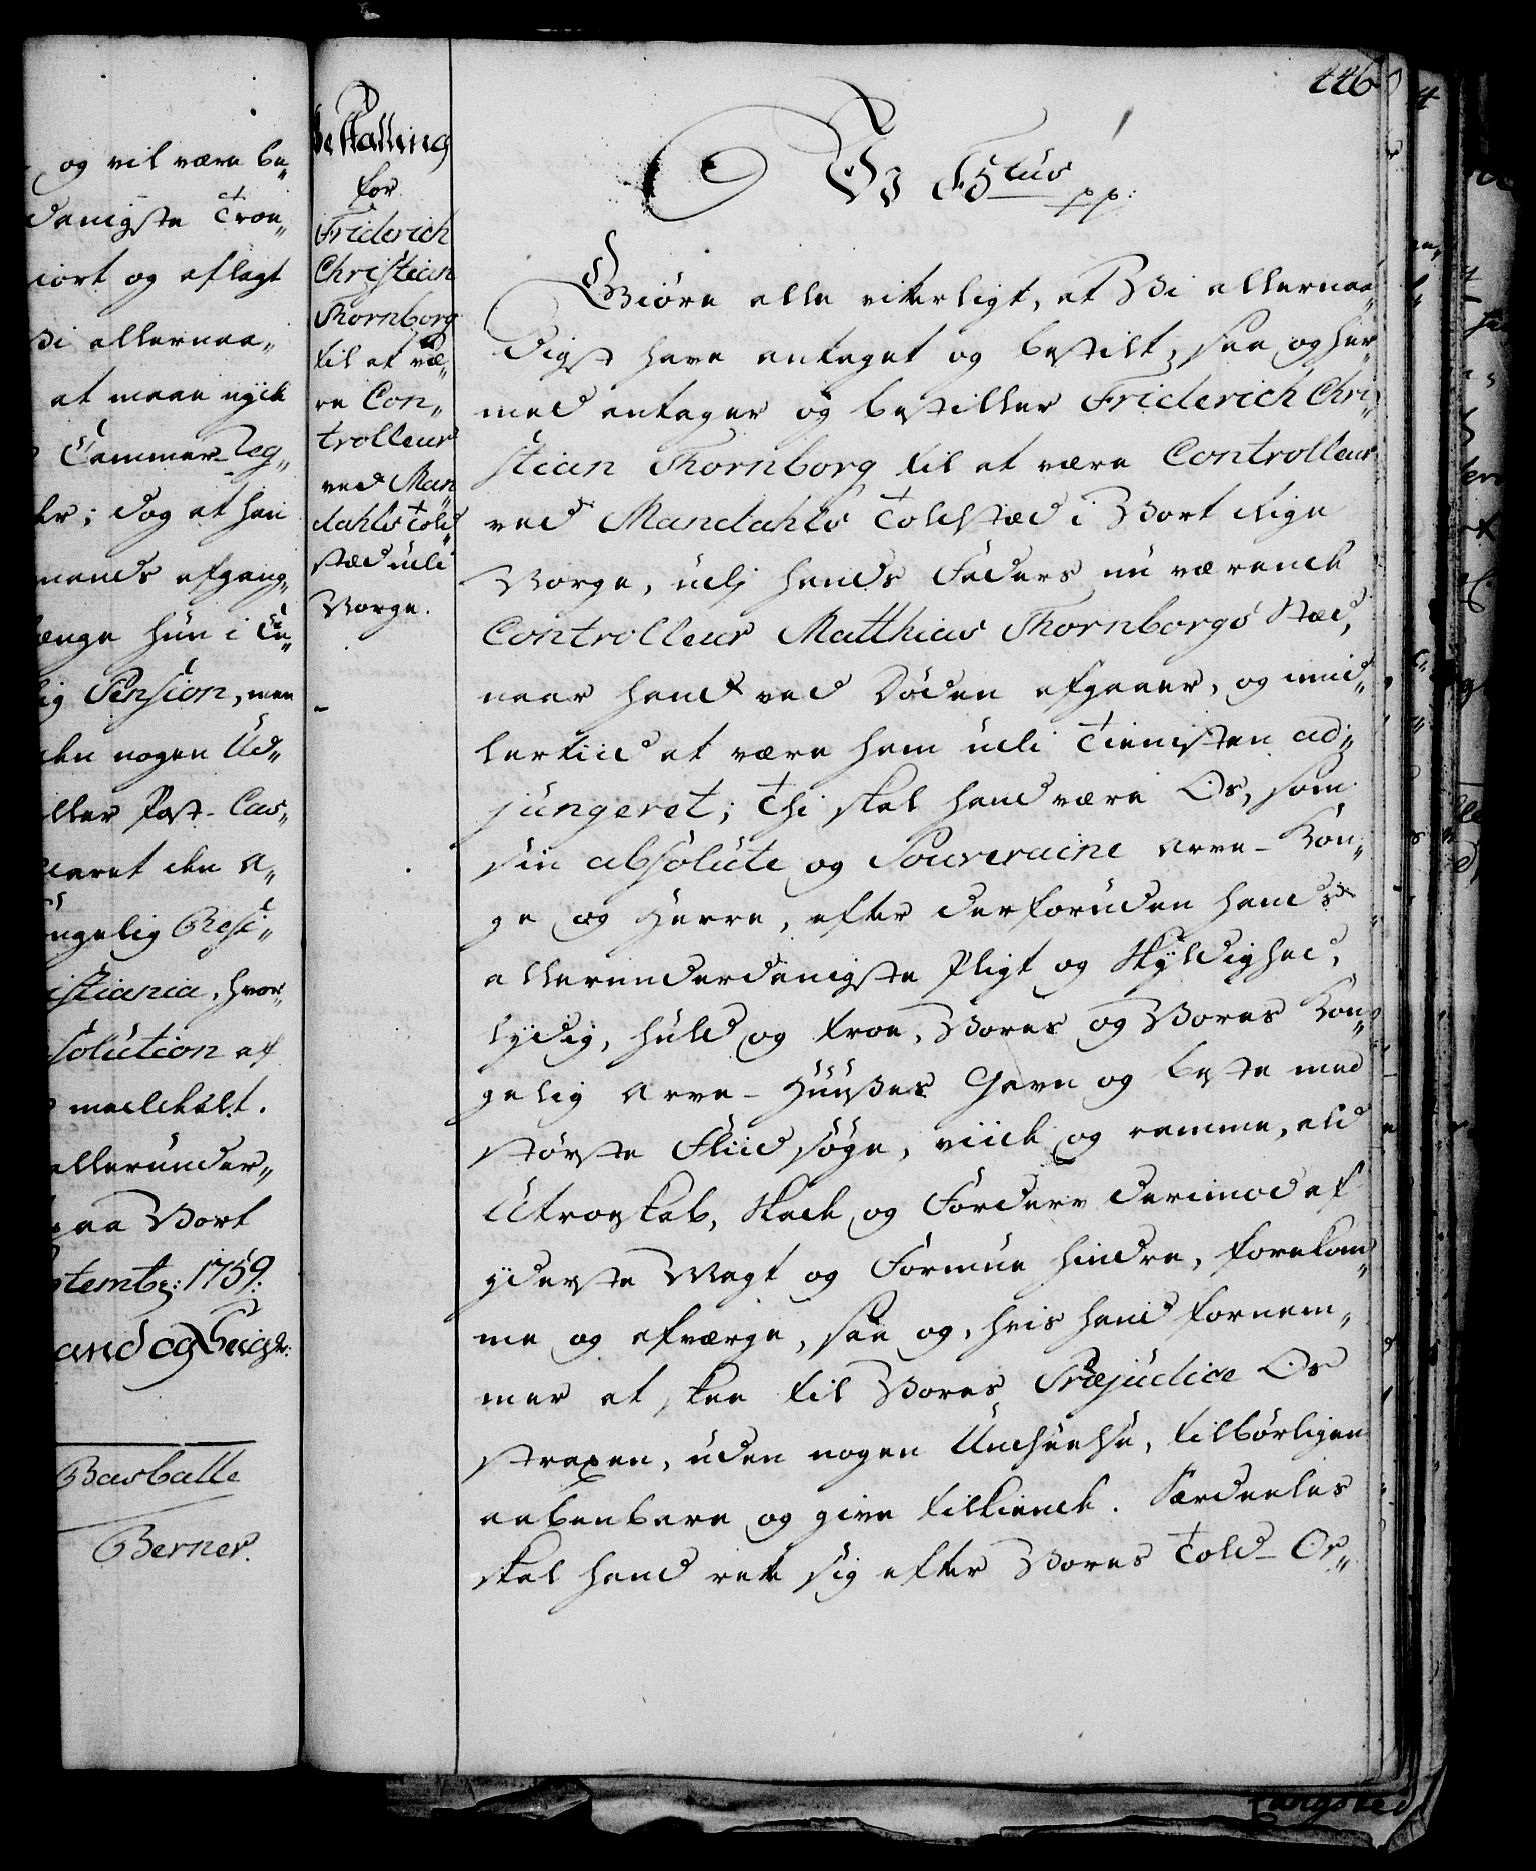 446
og vil være be„
danigste Troe„
iort og aflagt
Vi allernaa„
at maae nyde
Cammer-Reg„
ter; dog at hun
mands afgang„
længe hun i En„
lig Pension, men
den nogen Ud„
eller Post-Cas„
ngelig Resi„
istiania, hvor„
solution af
meddeelt.
allerunder„
paa Vort
ptembr: 1759.
and og Seigl:
Barballe
Berner.
Bestalling
for
Friderich
Christian
Thornborg
til at væ„
re Con„
trolleur
ved Man„
dahls Told„
stæd udi
Norge.
Vi F 5tus pp:
Giøre alle viterligt, at Vi allernaa„
digst have antaget og bestilt, saa og her„
med antager og bestiller Friderich Chri„
stian Thornborg til at være Controlleur
ved Mandahls Toldstæd i Vort Rige
Norge, udj hands Faders nu værende
Controlleur Matthias Thornborgs Stæd,
naar hand ved Døden afgaaer, og imid„
lertiid at være ham udi Tienisten ad„
jungeret; Thi skal hand være Os, som
sin absolute og Souveraine Arve-Kon„
ge og Herre, efter derforuden hands
allerunderdanigste Pligt og Skyldighed,
lydig, huld og troe, Vores og Vores Kon„
gelig Arve-Huußes Gavn og beste med
største Fliid søge, viide og ramme, ald
Utroskab, Skade og Fordærv derimod af
yderste Magt og Formue hindre, forekom„
me og afværge, saa og, hvis hand fornem„
mer at skee til Vores Præjudice Os
straxen, uden nogen Undseelse, tilbørligen
aabenbare og give tilkiende. Særdeeles
skal hand rette sig efter Vores Told-Or„